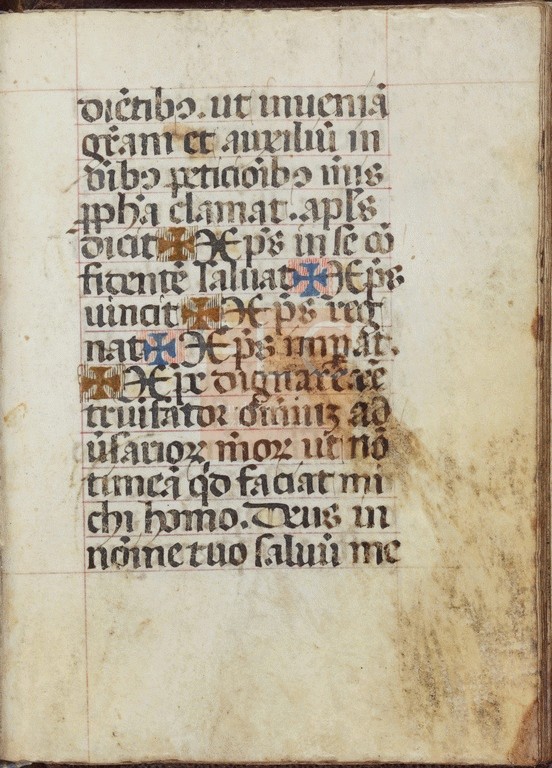 diẽtibꝯ. ut inueniã
gr̃am et auxiliũ in
oĩbꝯ peticiõibꝯ meis
ꝓph̃a clamat. apl̃s
dicit ✠ Xp̃s in se cõ
fidentẽ saluat ✠ Xp̃s
uincit ✠ Xp̃s reg
nat ✠ Xp̃s imp̃at.
✠ Xp̃e dignare
omniũ ad
ũsarioꝝ meoꝝ ut nõ
timeã qd̃ faciat mi
chi homo. Deus in
nõine tuo saluũ me